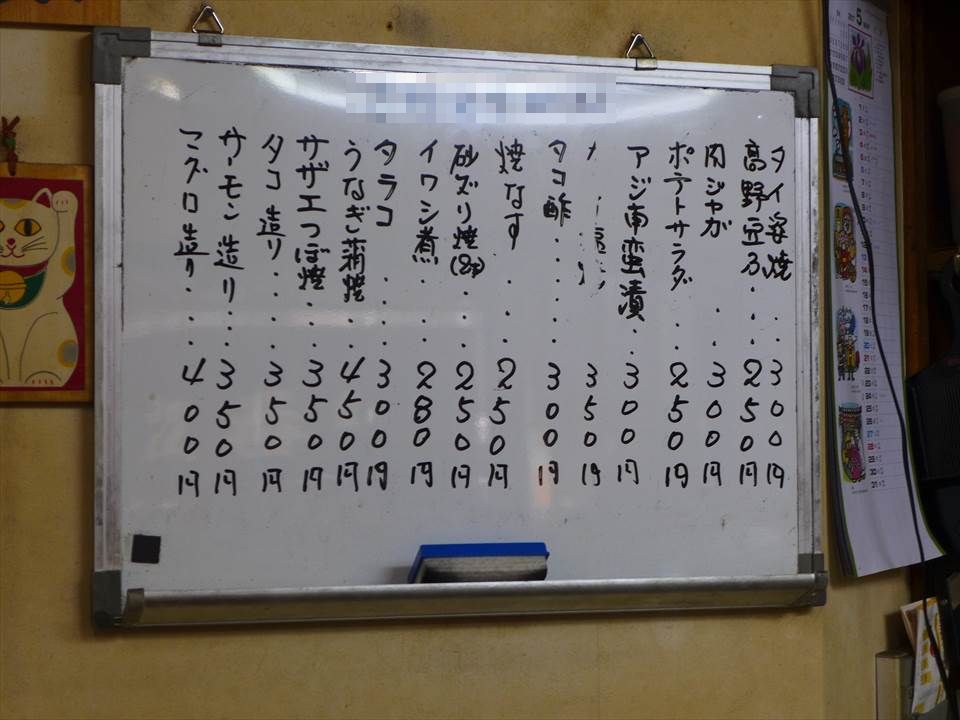 タイ塩焼・・300円
高野豆フ・・250円
肉ジャガ・・300円
ポテトサラダ・・250円
アジ南蛮漬・・300円
350円
タコ酢・・・・300円
焼なす・・・250円
砂ズリ焼(2本)・・250円
イワシ煮・・・280円
タラコ・・・300円
うなぎ蒲焼・・450円
サザエつぼ焼・・350円
タコ造り・・・350円
サーモン造り・・・350円
マグロ造り・・・400円
5